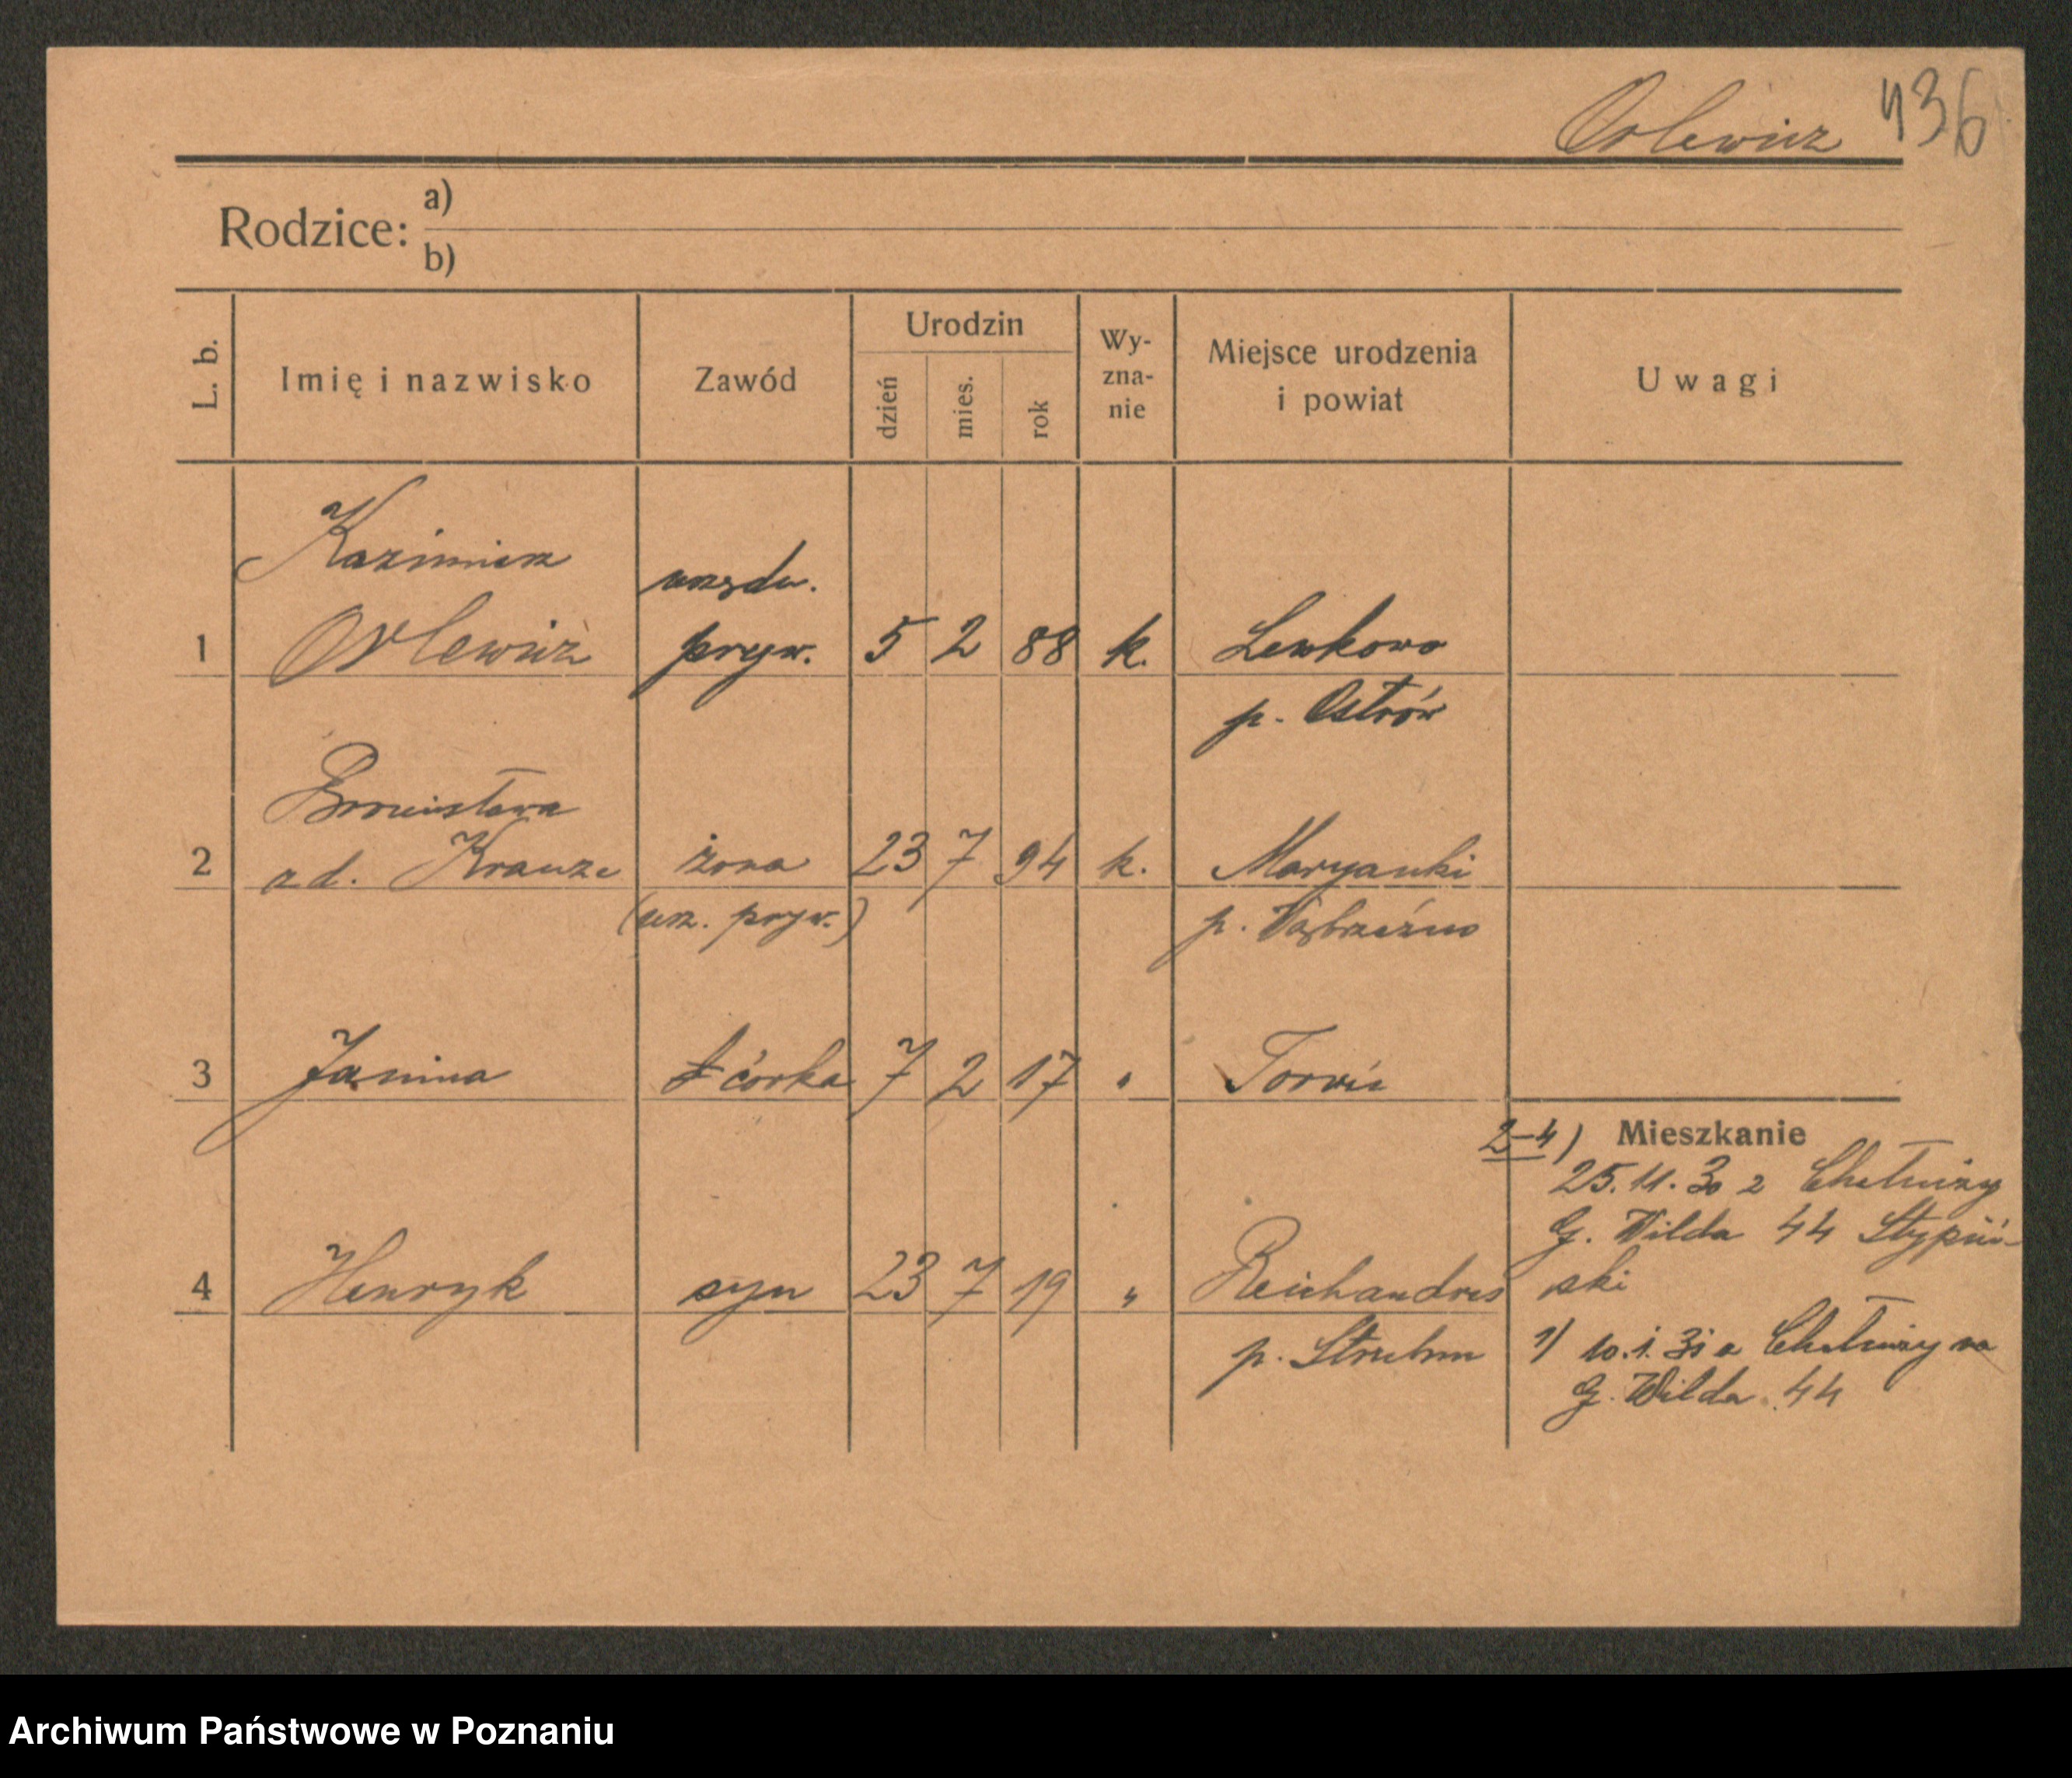 Orlewicz 436
Rodzice: a)
b)
L. b.
Imię i nazwisko
Zawód
Urodzin
dzień
mies.
rok
Wy-
zna-
nie
Miejsce urodzenia
i powiat
Uwagi
Kazimierz
urzędn.
1 Orlewicz pryw. 5 2 88 k. Lewkowo
p. Ostrów
Bronisława
2 zd. Krauze żona 23 7 94 k. Maryanki
(urz. pryw.) p. Wąbrzeźno
3 Janina córka 7 2 17 " Toruń
2-4) Mieszkanie
25.11.30 z Chełmży
G. Wilda 44 Stypiń-
4 Henryk syn 23 7 19 " Reichandres
ski
p. Stuhm
1) 10.1.31 z Chełmży na
G. Wilda 44
Archiwum Państwowe w Poznaniu